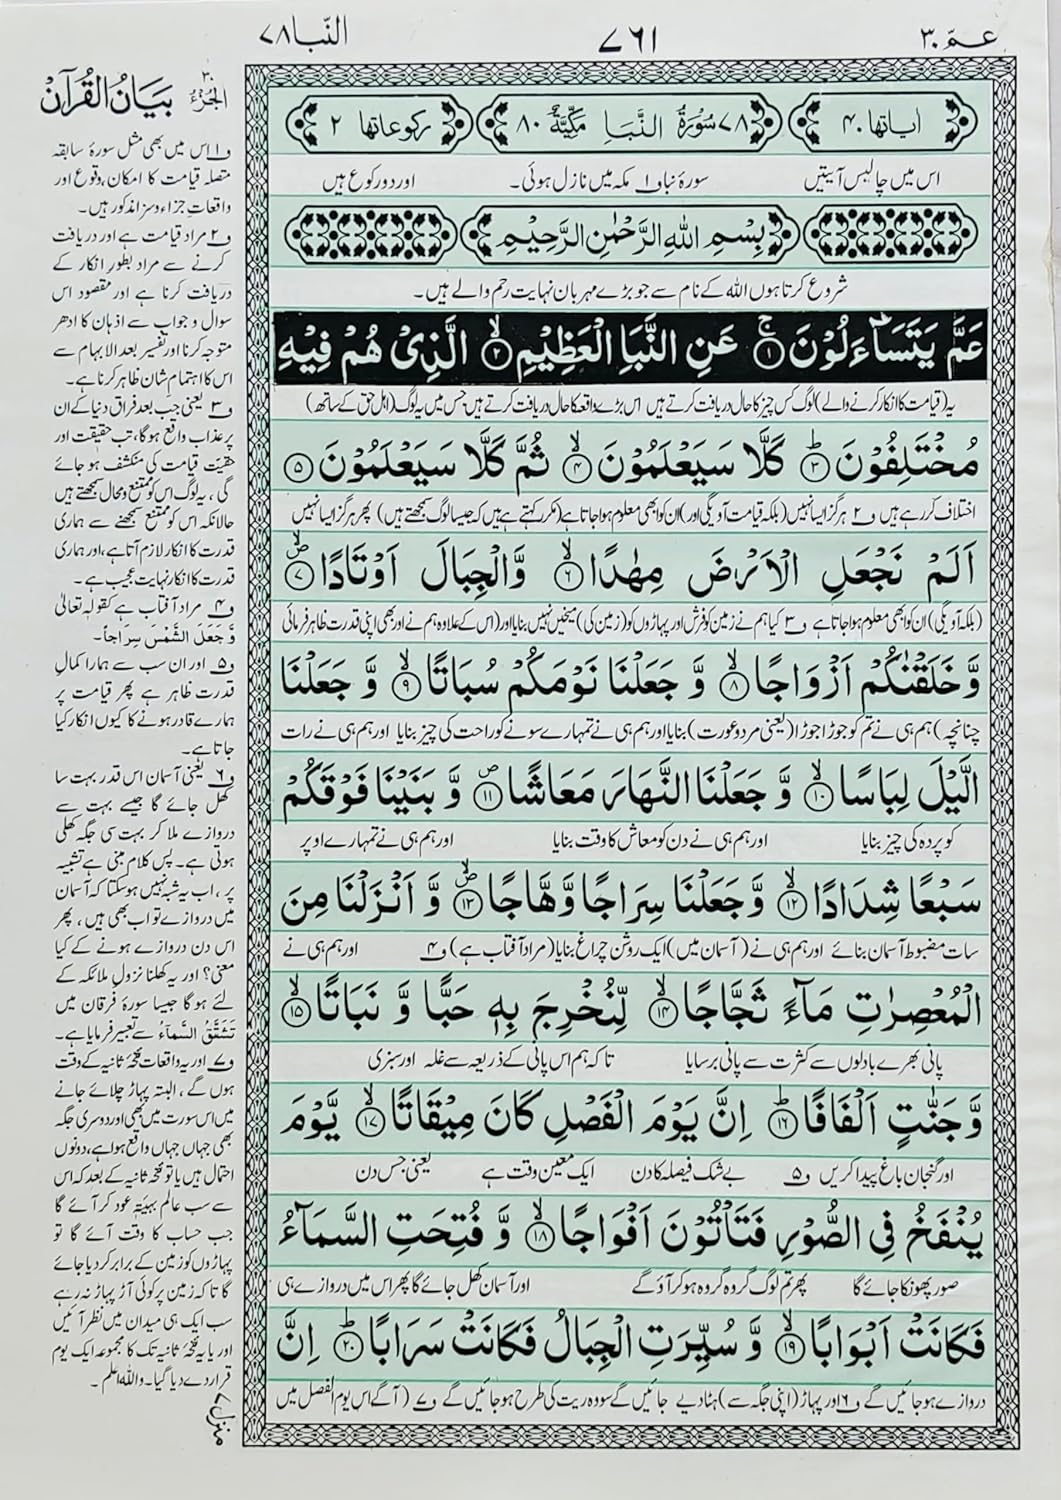 عمّ ۳۰
۷۶۱
النّبا ۷۸
اٰیاتها ۴۰
۷۸ سُوْرَةُ النَّبَاِ مَكِّيَّةٌ ۸۰
ركوعاتها ۲
اس میں چالیس آیتیں
سورۂ نبا ف۱ مکہ میں نازل ہوئی۔
اور دو رکوع ہیں
بِسْمِ اللّٰهِ الرَّحْمٰنِ الرَّحِيْمِ
شروع کرتا ہوں اللہ کے نام سے جو بڑے مہربان نہایت رحم والے ہیں۔
عَمَّ يَتَسَآءَلُوْنَ ۚ﴿۱﴾ عَنِ النَّبَاِ الْعَظِيْمِ ۙ﴿۲﴾ الَّذِىْ هُمْ فِيْهِ
یہ (قیامت کا انکار کرنے والے) لوگ کس چیز کا حال دریافت کرتے ہیں اس بڑے واقعہ کا حال دریافت کرتے ہیں جس میں یہ لوگ (اہل حق کے ساتھ)
مُخْتَلِفُوْنَ ؕ﴿۳﴾ كَلَّا سَيَعْلَمُوْنَ ۙ﴿۴﴾ ثُمَّ كَلَّا سَيَعْلَمُوْنَ ﴿۵﴾
اختلاف کر رہے ہیں ف۲ ہرگز ایسا نہیں (بلکہ قیامت آویگی اور) ان کو ابھی معلوم ہوا جاتا ہے (مکرر کہتے ہیں کہ جیسا لوگ سمجھتے ہیں) پھر ہرگز ایسا نہیں
اَلَمْ نَجْعَلِ الْاَرْضَ مِهٰدًا ۙ﴿۶﴾ وَّالْجِبَالَ اَوْتَادًا ۪ۙ﴿۷﴾
(بلکہ آویگی) ان کو ابھی معلوم ہوا جاتا ہے ف۳ کیا ہم نے زمین کو فرش اور پہاڑوں کو (زمین کی) میخیں نہیں بنایا اور (اس کے علاوہ ہم نے اور بھی اپنی قدرت ظاہر فرمائی
وَّخَلَقْنٰكُمْ اَزْوَاجًا ۙ﴿۸﴾ وَّ جَعَلْنَا نَوْمَكُمْ سُبَاتًا ۙ﴿۹﴾ وَّ جَعَلْنَا
چنانچہ) ہم ہی نے تم کو جوڑا جوڑا (یعنی مرد و عورت) بنایا اور ہم ہی نے تمہارے سونے کو راحت کی چیز بنایا اور ہم ہی نے رات
الَّيْلَ لِبَاسًا ۙ﴿۱۰﴾ وَّ جَعَلْنَا النَّهَارَ مَعَاشًا ۪﴿۱۱﴾ وَّ بَنَيْنَا فَوْقَكُمْ
کو پردہ کی چیز بنایا
اور ہم ہی نے دن کو معاش کا وقت بنایا
اور ہم ہی نے تمہارے اوپر
سَبْعًا شِدَادًا ۙ﴿۱۲﴾ وَّجَعَلْنَا سِرَاجًا وَّهَّاجًا ۪ۙ﴿۱۳﴾ وَّ اَنْزَلْنَا مِنَ
سات مضبوط آسمان بنائے اور ہم ہی نے (آسمان میں) ایک روشن چراغ بنایا (مراد آفتاب ہے) ف۴ اور ہم ہی نے
الْمُعْصِرٰتِ مَآءً ثَجَّاجًا ۙ﴿۱۴﴾ لِّنُخْرِجَ بِهٖ حَبًّا وَّ نَبَاتًا ۙ﴿۱۵﴾
پانی بھرے بادلوں سے کثرت سے پانی برسایا
تاکہ ہم اس پانی کے ذریعہ سے غلہ اور سبزی
وَّجَنّٰتٍ اَلْفَافًا ؕ﴿۱۶﴾ اِنَّ يَوْمَ الْفَصْلِ كَانَ مِيْقَاتًا ۙ﴿۱۷﴾ يَّوْمَ
اور گنجان باغ پیدا کریں ف۵ بے شک فیصلہ کا دن ایک معین وقت ہے یعنی جس دن
يُنْفَخُ فِى الصُّوْرِ فَتَاْتُوْنَ اَفْوَاجًا ۙ﴿۱۸﴾ وَّ فُتِحَتِ السَّمَآءُ
صور پھونکا جائے گا پھر تم لوگ گروہ گروہ ہو کر آؤ گے اور آسمان کھل جائے گا پھر اس میں دروازے ہی
فَكَانَتْ اَبْوَابًا ۙ﴿۱۹﴾ وَّ سُيِّرَتِ الْجِبَالُ فَكَانَتْ سَرَابًا ؕ﴿۲۰﴾ اِنَّ
دروازے ہو جائیں گے ف۶ اور پہاڑ (اپنی جگہ سے) ہٹا دیے جائیں گے سو وہ ریت کی طرح ہو جائیں گے ف۷ (آگے اس یوم الفصل میں
الجُزْءُ ۳۰
بَیَانُ القُرآن
ف۱ اس میں بھی مثل سورۂ سابقہ
متصلہ قیامت کا امکان، وقوع اور
واقعاتِ جزاء و سزا مذکور ہیں۔
ف۲ مراد قیامت ہے اور دریافت
کرنے سے مراد بطور انکار کے
دریافت کرنا ہے اور مقصود اس
سوال و جواب سے اذہان کا ادھر
متوجہ کرنا اور تفسیر بعد الابہام سے
اس کا اہتمامِ شان ظاہر کرنا ہے۔
ف۳ یعنی جب بعد فراق دنیا کے ان
پر عذاب واقع ہوگا، تب حقیقت اور
حقیّت قیامت کی منکشف ہو جائے
گی، یہ لوگ اس کو ممتنع و محال سمجھتے ہیں
حالانکہ اس کو ممتنع سمجھنے سے ہماری
قدرت کا انکار لازم آتا ہے، اور ہماری
قدرت کا انکار نہایت عجیب ہے۔
ف۴ مراد آفتاب ہے کقولہ تعالیٰ
وَّجَعَلَ الشَّمْسَ سِرَاجًا۔
ف۵ اور ان سب سے ہمارا کمالِ
قدرت ظاہر ہے پھر قیامت پر
ہمارے قادر ہونے کا کیوں انکار کیا
جاتا ہے۔
ف۶ یعنی آسمان اس قدر بہت سا
کھل جائے گا جیسے بہت سے
دروازے ملا کر بہت سی جگہ کھلی
ہوتی ہے۔ پس کلام مبنی ہے تشبیہ
پر، اب یہ شبہ نہیں ہو سکتا کہ آسمان
میں دروازے تو اب بھی ہیں، پھر
اس دن دروازے ہونے کے کیا
معنی؟ اور یہ کھلنا نزولِ ملائکہ کے
لئے ہوگا جیسا سورۂ فرقان میں
تَشَقَّقُ السَّمَآءُ سے تعبیر فرمایا ہے۔
ف۷ اور یہ واقعات نفخۂ ثانیہ کے وقت
ہوں گے، البتہ پہاڑ چلائے جانے
میں اس سورت میں بھی اور دوسری جگہ
بھی جہاں جہاں واقع ہوا ہے، دونوں
احتمال ہیں یا تو نفخۂ ثانیہ کے بعد کہ اس
سے سب عالم بہیئتہٖ عود کر آئے گا
جب حساب کا وقت آئے گا تو
پہاڑوں کو زمین کے برابر کر دیا جائے
گا تاکہ زمین پر کوئی آڑ پہاڑ نہ رہے
سب ایک ہی میدان میں نظر آئیں
اور یا یہ نفخۂ ثانیہ تک کا مجموعہ ایک یوم
قرار دے دیا گیا۔ واللہ اعلم۔
منزل ۷